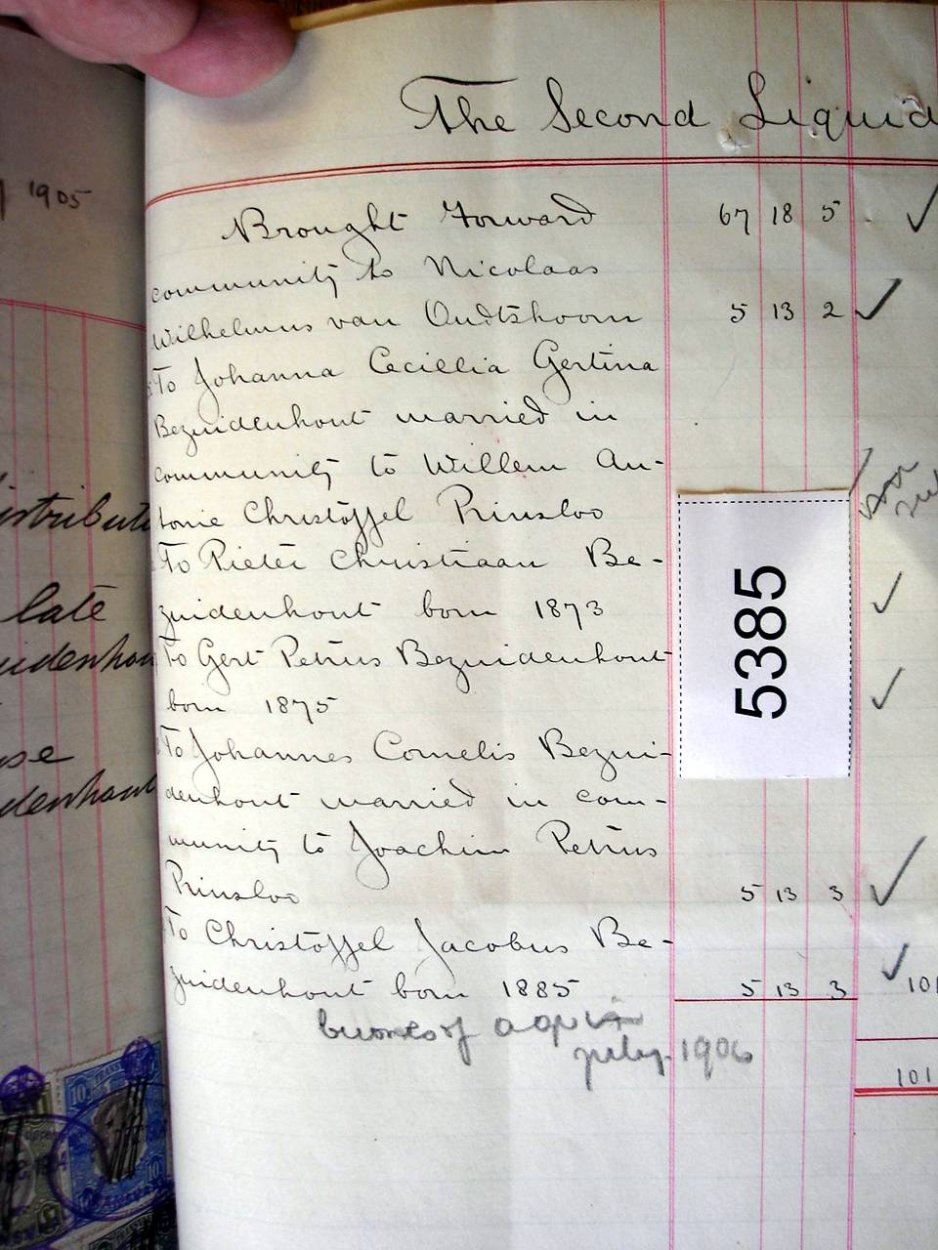 1905
istribut
late
uidenhou
se
denhout
The Second Liquid
Brought Forward 67 18 5
community to Nicolaas
Wilhelmus van Oudtshoorn 5 13 2
To Johanna Cecillia Gertina
Bezuidenhout married in
community to Willem An-
tonie Christoffel Prinsloo
To Pieter Christiaan Be-
zuidenhout born 1873
To Gert Petrus Bezuidenhout
born 1875
To Johannes Cornelis Bezui-
denhout married in com-
munity to Joachim Petrus
Prinsloo 5 13 3
To Christoffel Jacobus Be-
zuidenhout born 1885 5 13 3 101
July 1906
101
5385